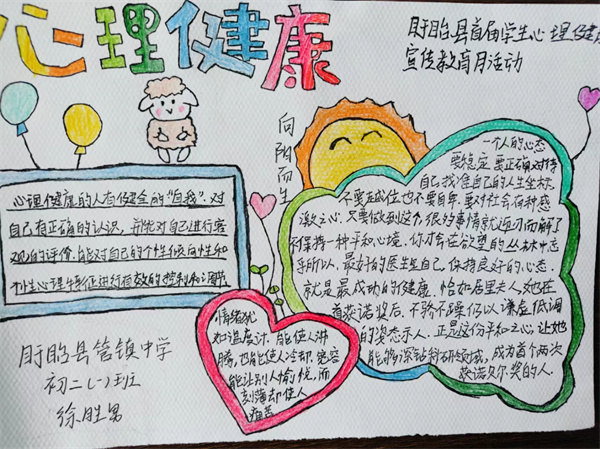 心理健康
盱眙县首届学生心理健康
宣传教育月活动
向阳而生
心理健康的人有健全的“自我”，对
自己有正确的认识，并能对自己进行客
观的评价，能对自己的个性倾向性和
个性心理特征进行有效的控制和调节
盱眙县管镇中学
初二（一）班
徐胜男
情绪犹
如温度计，能使人沸
腾，也能使人冷却，宽容
能让别人愉悦，而
刻薄却使人
痛苦
一个人的心态
要稳定，要正确对待
自己，找准自己的人生坐标，
不要越位也不要自卑。要对社会存种感
激之心，只要做到这个，很多事情就迎刃而解了
不保持一种平和心境，你才会在欲望的丛林中忘
乎所以，最好的医生是自己，保持良好的心态，
就是最成功的健康，恰如居里夫人她在
首获诺奖后，不骄不躁仍以谦虚低调
的姿态示人，正是这份平和之心让她
能够深钻科研领域，成为首个两次
获诺贝尔奖的人.